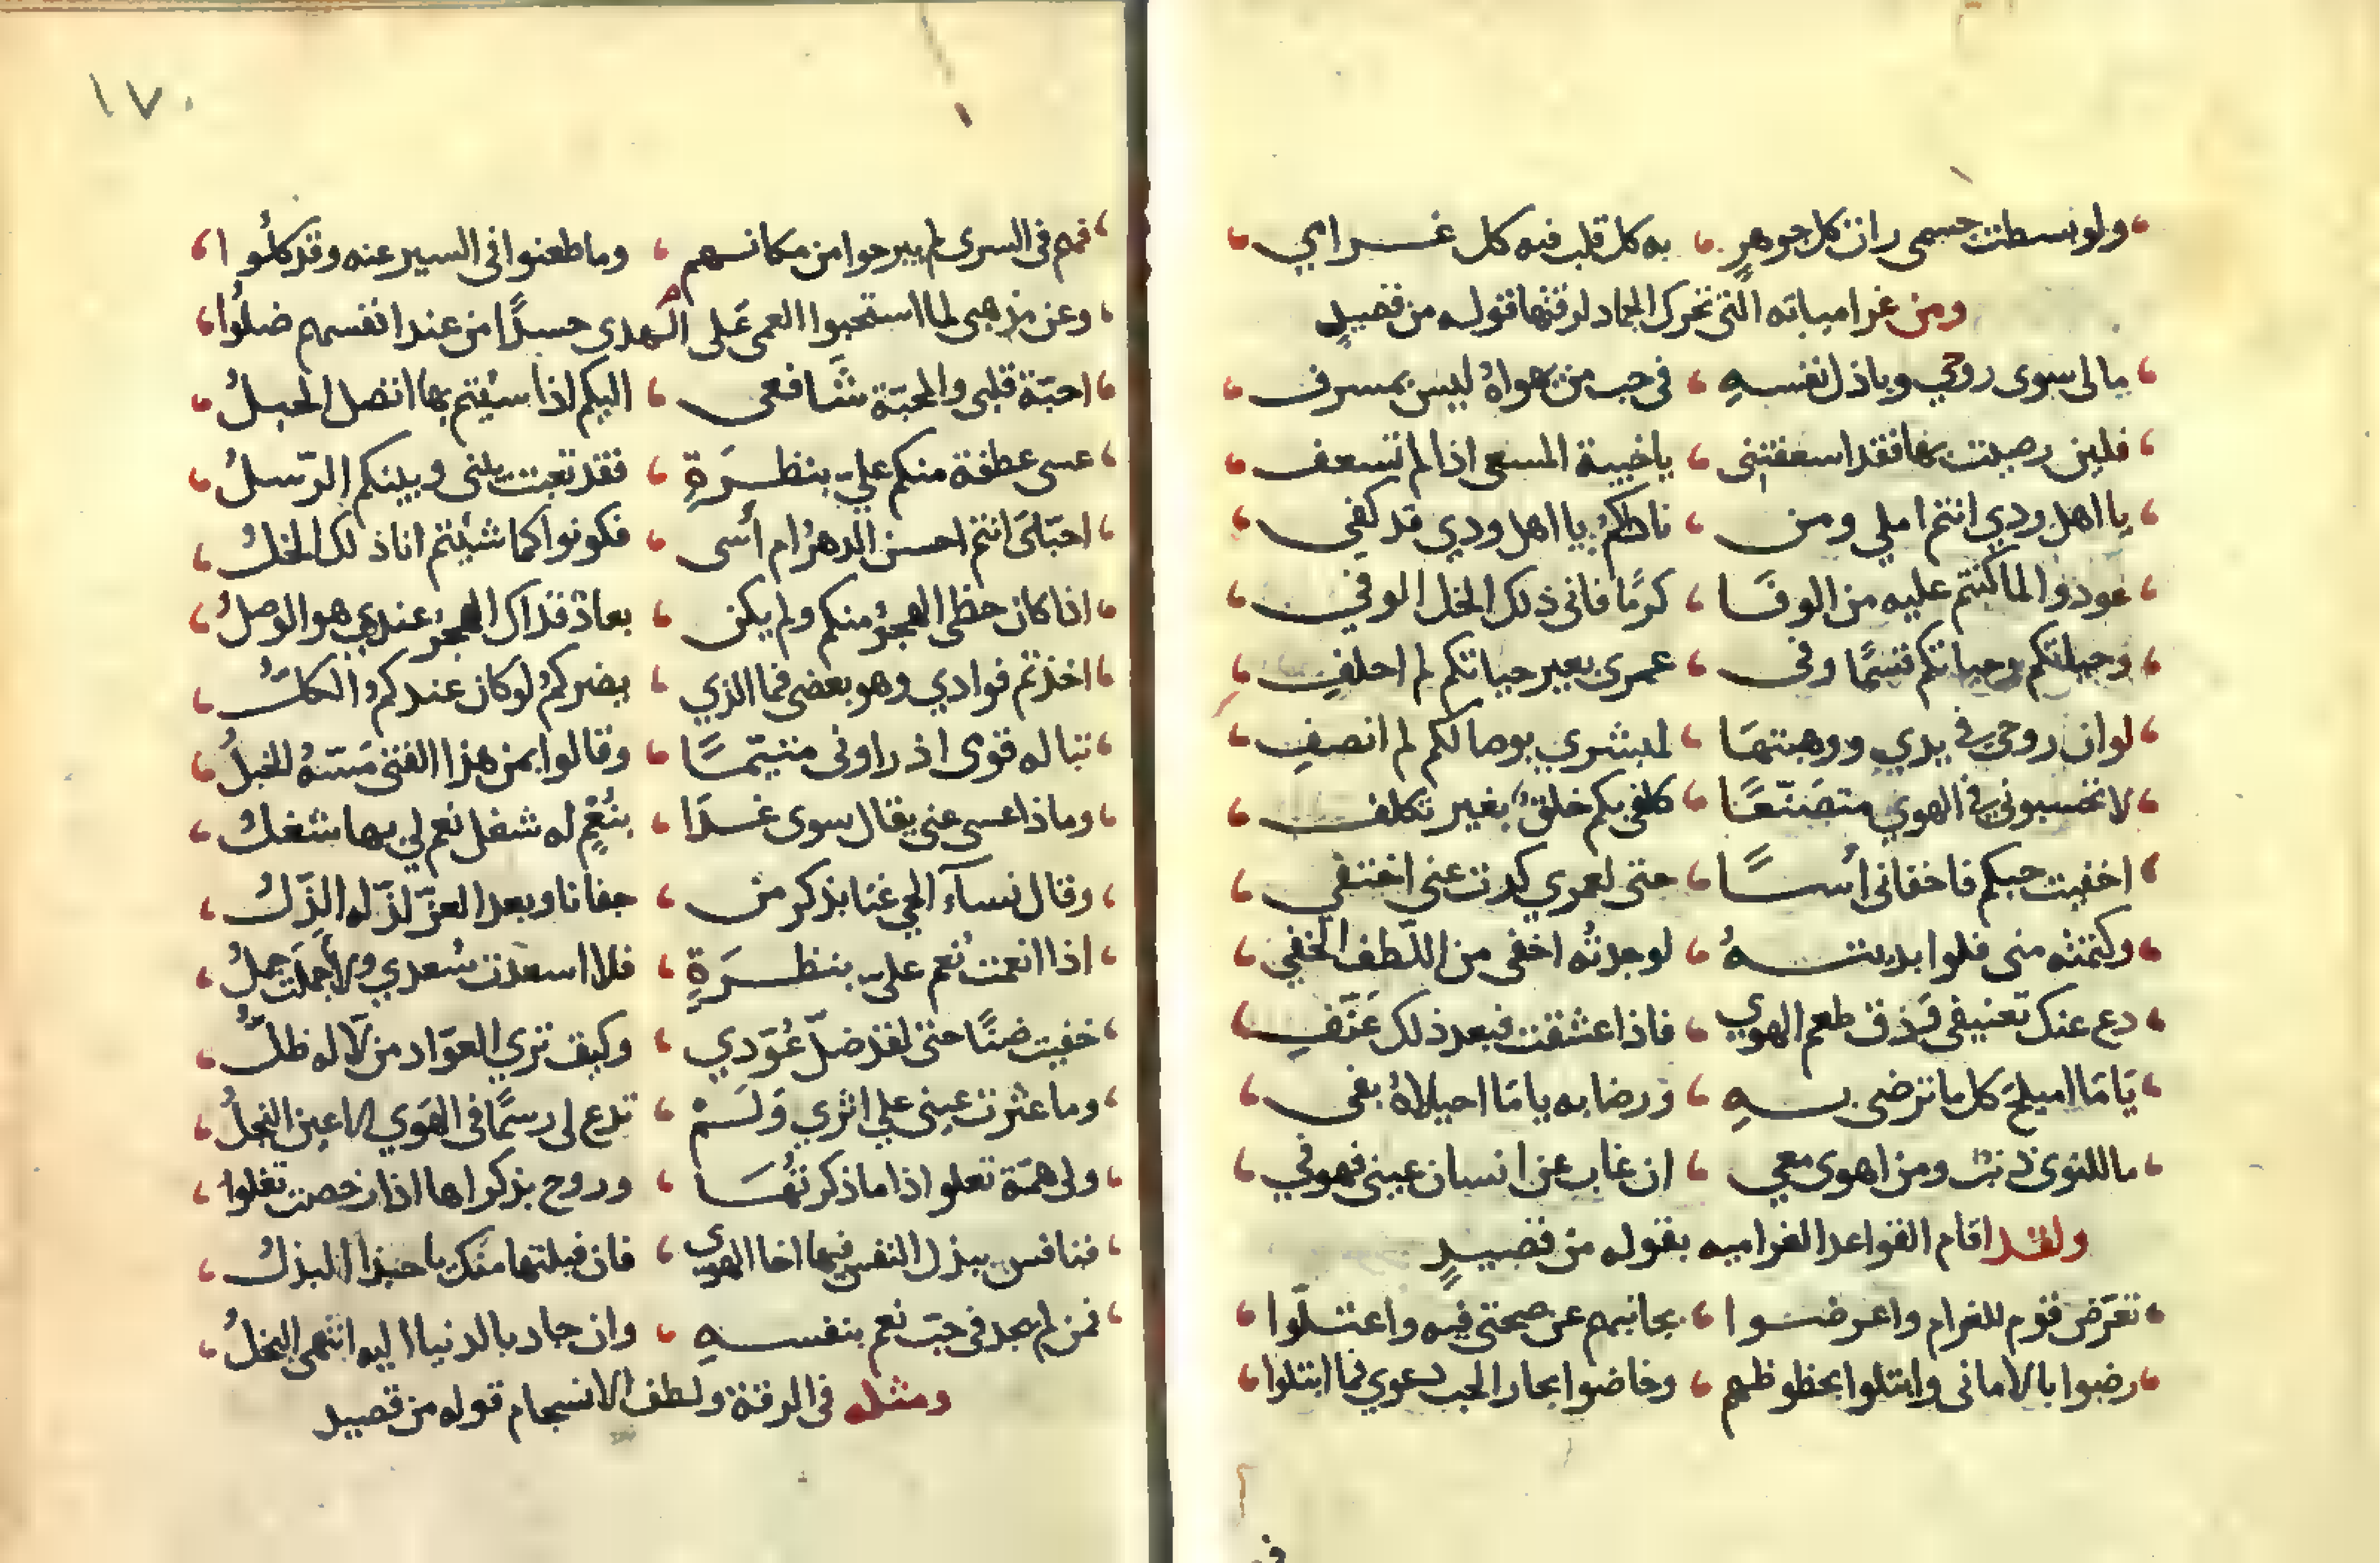 ولو بسطت جسمي رات كل جوهرٍ به كل قلب فيه كل غرامي
ومن غرامياته التي تحرك الجماد لرقتها قوله من قصيدٍ
مالي سوى روحي وباذل نفسهِ في حب من يهواهُ ليس بمسرف
فلين رضيت بها فقد اسعفتني يا خيبة المسعى اذا لم تسعف
يا اهل ودي انتم املي ومن ناداكمُ يا اهل ودي قد كفي
عودوا لما كنتم عليه من الوفا كرمًا فاني ذلك الخل الوفي
وحياتكم وحياتكم قسمًا وفي عمري بغير حياتكم لم احلفِ
لو ان روحي في يدي ووهبتها لمبشري بوصالكم لم انصفِ
لا تحسبوني في الهوي متصنّعًا كلفي بكم خلقٌ بغير تكلف
اخفيت حبكم فاخفاني أسًا حتى لعمري كدت عني اختفي
وكتمته مني فلو ابديتهُ لوجدتُه اخفى من اللّطف الخفي
دع عنك تعنيفي وذق طعم الهوي فاذا عشقت فبعد ذلك عَنّفِ
يَا مَا اميلح كل ما ترضى بهِ ورضابه يا مَا احيلاهُ بفي
ما للنوى ذنب ومن اهوى معي ان غاب عن انسان عيني فهو في
ولقد اقام القواعد الغراميه بقوله من قصيدٍ
تعرّض قوم للغرام واعرضوا بجانبهم عن صحتي فيه واعتلّوا
رضوا بالاماني وابتلوا بحظوظهم وخاضوا بحار الحب دعوي فما ابتلوا
١٧٠
فهم في السرى لم يبرحوا من مكانهم وما ظعنوا في السير عنه وقد كلُّوا
وعن مذهبي لما استحبوا العمى عَلى الهدى حسدًا من عند انفسهم ضلُّوا
احبّة قلبي والمحبّة شَافعي اليكم اذا شيتم بها اتصل الحبلُ
عسى عطفة منكم علي بنظرَةٍ فقد تعبت بيني وبينكم الرّسلُ
احبّايَ انتم احسن الدهرُ ام أسى فكونوا كما شيتم انا ذلك الخلُ
اذا كان حظى الهجرُ منكم ولم يكن بعاد فذاك الهجرُ عندي هو الوصلُ
اخذتم فوادي وهو بعضي فما الذي يضركمُ لو كان عندكم الكلُ
تباله قومى اذ راوني متيّمًا وقالوا بمن هذا الفتى مَسّهُ الخبلُ
وماذا عسى عني يقال سوى غدَا بنُعْمٍ له شغل نعم لي بها شغلُ
وقال نسآء الحي عنا بذكر من جفانا وبعد العزّ لذّ له الذّلُ
اذا انعمت نُعم علي بنظرَةٍ فلا اسعدت سُعدي ولا اجملَت جملُ
خفيت ضنًا حتى لقد ضلّ عُوّدي وكيف تري العوّاد من لّا له ظلُّ
وما عثرت عيني علي اثري ولَمْ تدع لي رسمًا في الهَوي الاعين النجلُ
ولي همّة تعلو اذا ما ذكرتُهَا وروح بذكراها اذا رخصت تغلوا
فنافس ببذل النفس فيها اخا الهوي فان قبلتها منك يا حبذا البذلُ
فمن لم يجد في حبّ نعم بنفسهِ وان جاد بالدنيا اليه انتهى البخلُ
ومثله في الرقة ولطف الانسجام قوله من قصيد